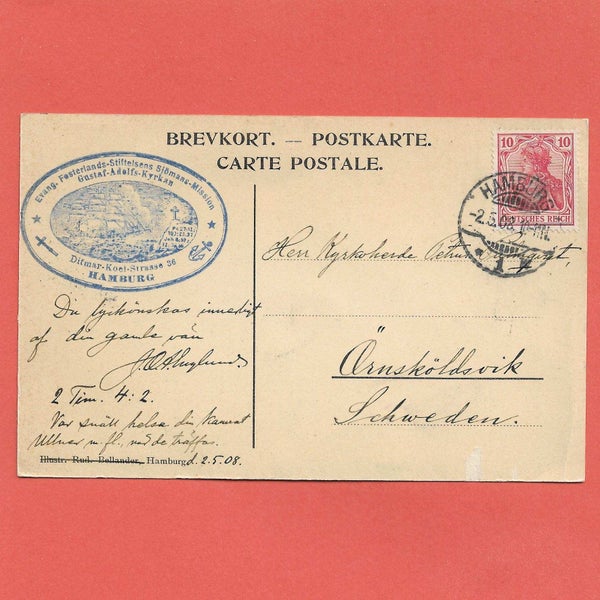 BREVKORT. — POSTKARTE.
CARTE POSTALE.
10 10
DEUTSCHES REICH
HAMBURG
-2.5.08.
1
Evang. Fosterlands-Stiftelsens Sjömans-Mission
Gustaf-Adolfs-Kyrkan
Ditmar-Koel-Strasse 36
HAMBURG
Herr Kyrkoherde
Örnsköldsvik
Schweden.
Du lyckönskas innerligt
af din gamle vän
2 Tim. 4:2.
Var snäll helsa din kamrat
m. fl., när de träffas.
Illustr. Rud. Bellander, Hamburg d. 2.5.08.